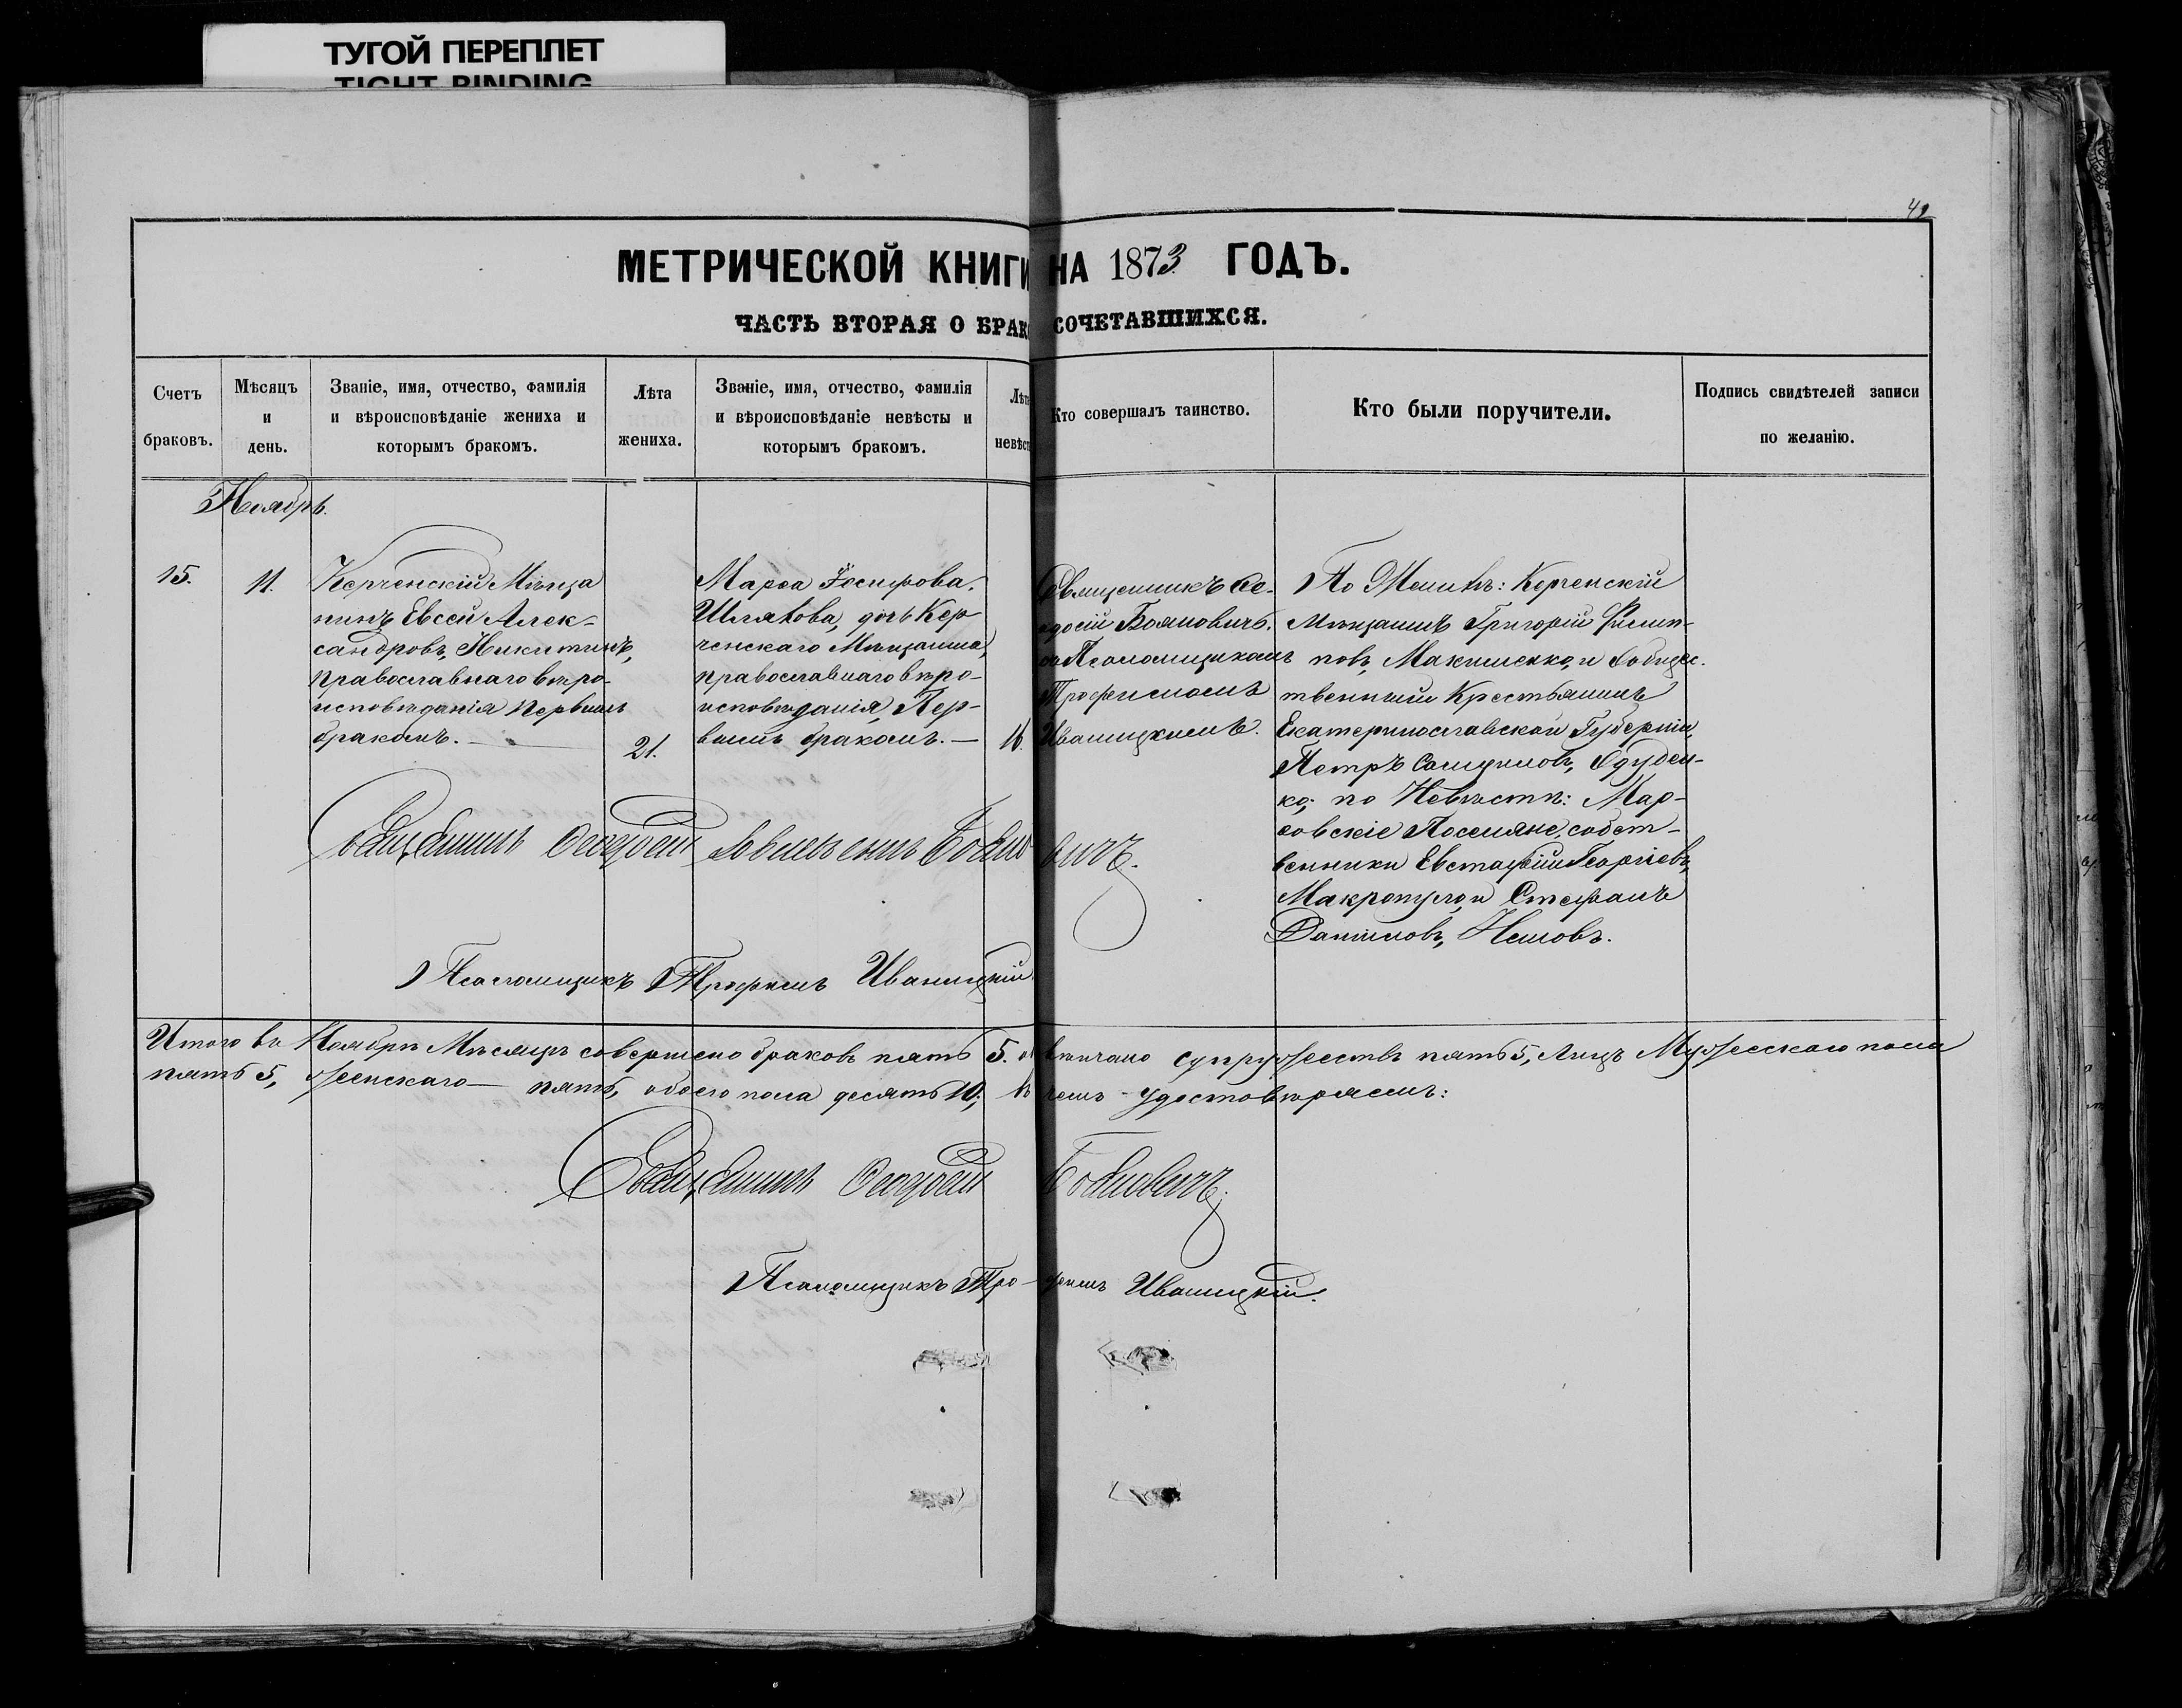 ТУГОЙ ПЕРЕПЛЕТ
TIGHT BINDING
49
МЕТРИЧЕСКОЙ КНИГИ НА 1873 ГОДЪ.
ЧАСТЬ ВТОРАЯ О БРАКОСОЧЕТАВШИХСЯ.
Счетъ
браковъ.
Мѣсяцъ
и
день.
Званіе, имя, отчество, фамилія
и вѣроисповѣданіе жениха и
которымъ бракомъ.
Лѣта
жениха.
Званіе, имя, отчество, фамилія
и вѣроисповѣданіе невѣсты и
которымъ бракомъ.
Лѣта
невѣст
Кто совершалъ таинство.
Кто были поручители.
Подпись свидѣтелей записи
по желанію.
Ноябрь.
15.
11.
Керченскій Мѣща
нинъ Евсей Алек-
сандровъ, Никитинъ,
православнаго вѣро-
исповѣданія первымъ
бракомъ.
21.
Марѳа Іосифова
Шляхова, дочь Кер-
ченскаго Мѣщанина,
православнаго вѣро-
исповѣданія, Пер-
вымъ бракомъ.
16.
Священникъ Ѳе-
одосій Бояновичъ.
съ Псаломщикомъ
Трофимомъ
Иваницкимъ.
По Женихѣ: Керченскій
Мѣщанинъ Григорій Филип-
повъ, Макименко, и Собщес-
твенный Крестьянинъ
Екатеринославской Губерніи,
Петръ Самуиловъ,
ко; по Невѣстѣ: Мар-
совскіе Поселяне, собст-
венники Евстафій Георгіевъ,
Макропуло, и Стефанъ
Даниловъ,
Священникъ Ѳеодосій Бояновичъ.
Псаломщикъ Трофимъ Иваницкій
Итого въ Ноябрѣ Мѣсяцѣ совершено браковъ пять 5. повѣнчано супружествъ пять 5, Лицъ Мужескаго пола
пять 5, женскаго пять, обоего пола десять 10; въ чемъ удостовѣряемъ:
Священникъ Ѳеодосій Бояновичъ.
Псаломщикъ Трофимъ Иваницкій.